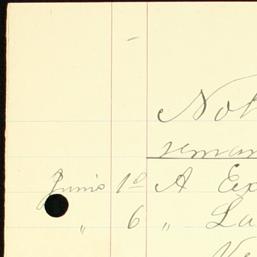 Not
seman
Junio 1º A Ex
" 6 " La
Ve